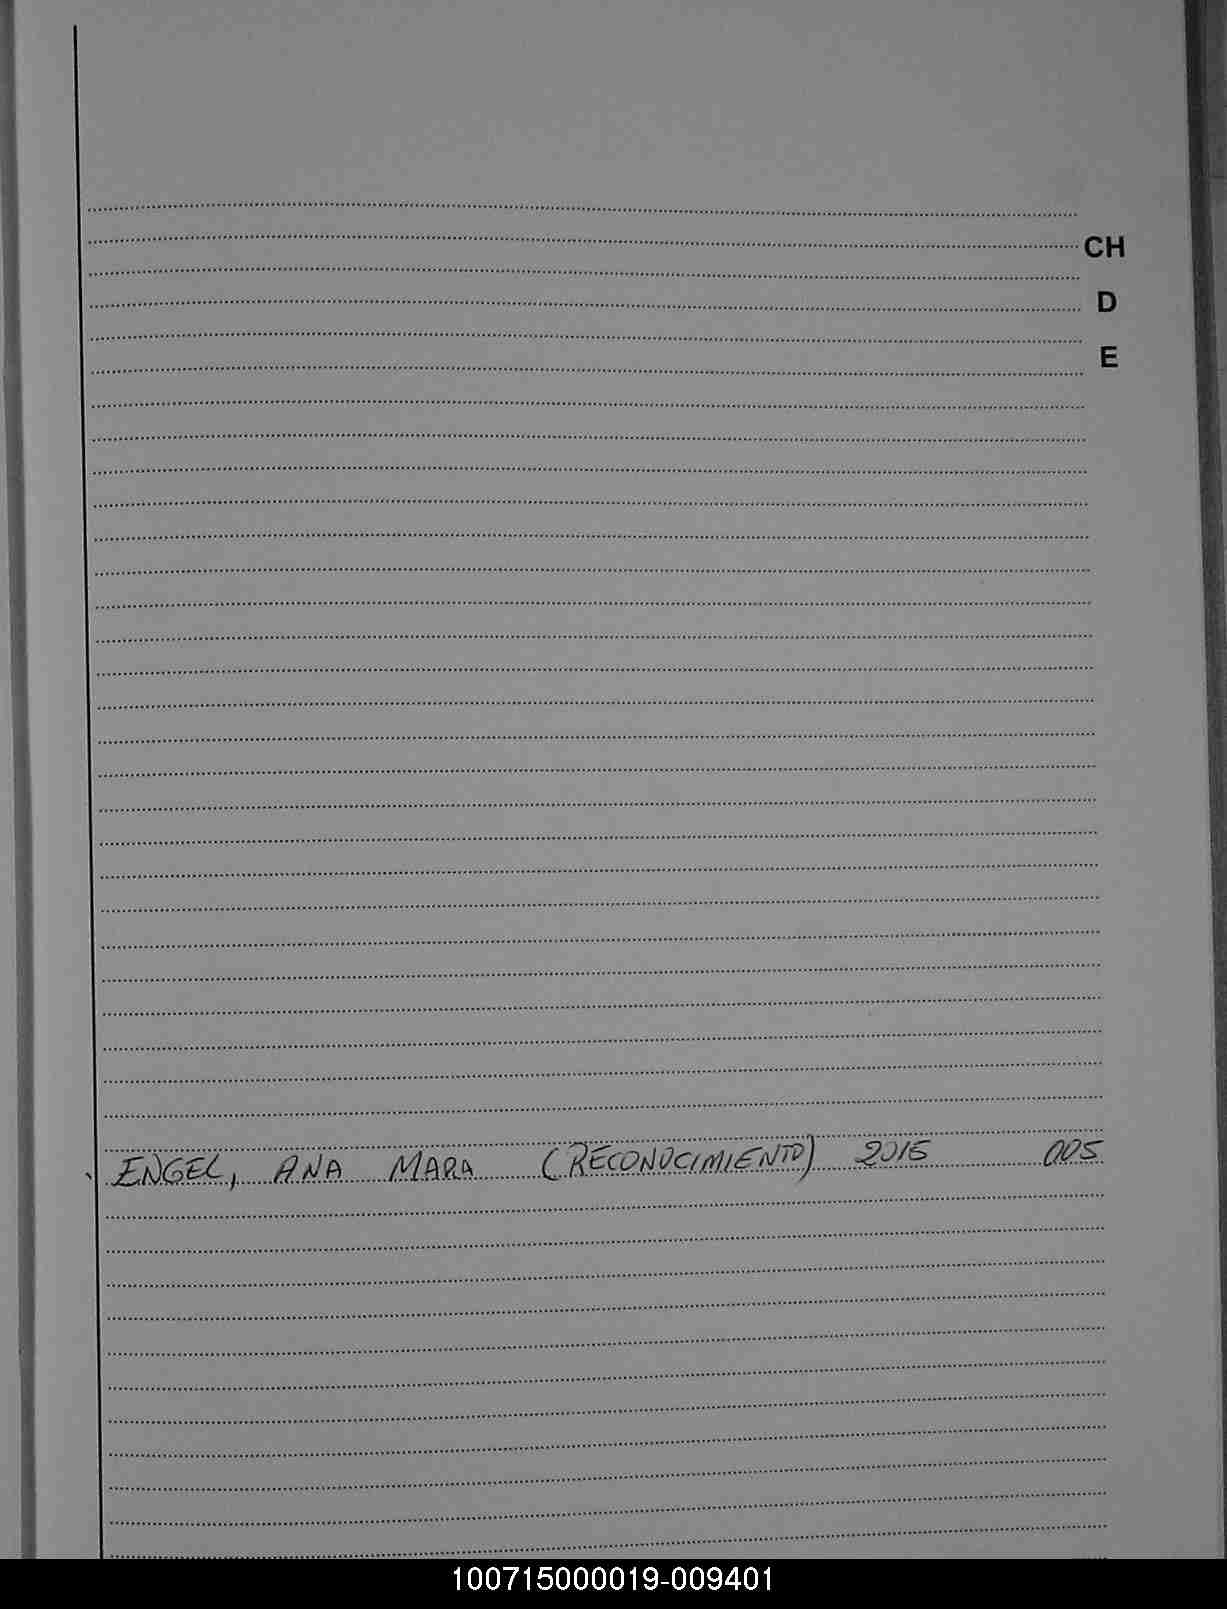 CH
D
E
ENGEL, ANA MARA (RECONOCIMIENTO) 2015 005
100715000019-009401